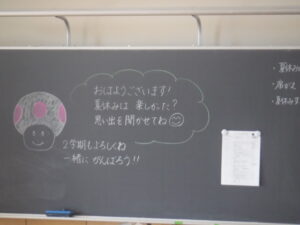 おはようございます!
夏休みは 楽しかった?
思い出を聞かせてね
2学期もよろしくね
一緒に がんばろう!!
・夏休み
・席がえ
・夏休み